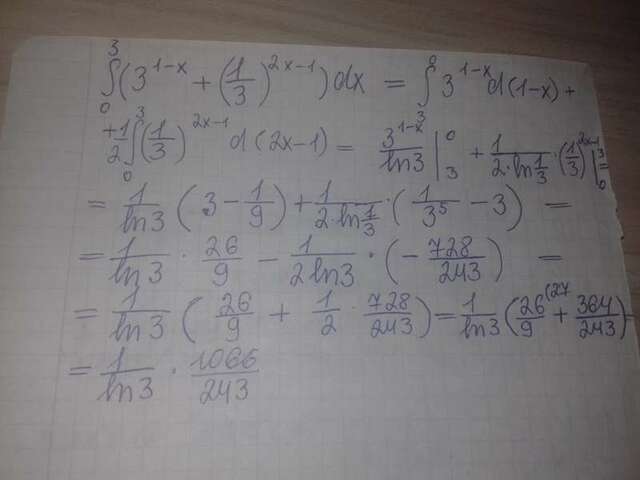 ∫₀³(3^(1-x) + (1/3)^(2x-1))dx = ∫₃⁰ 3^(1-x) d(1-x) +
+ 1/2 ∫₀³ (1/3)^(2x-1) d(2x-1) = 3^(1-x)/ln3 |₃⁰ + 1/(2·ln 1/3) · (1/3)^(2x-1) |₀³ =
= 1/ln3 (3 - 1/9) + 1/(2·ln 1/3) · (1/3⁵ - 3) =
= 1/ln3 · 26/9 - 1/(2ln3) · (-728/243) =
= 1/ln3 (26/9 + 1/2 · 728/243) = 1/ln3 (26^(27/9 + 364/243) =
= 1/ln3 · 1066/243